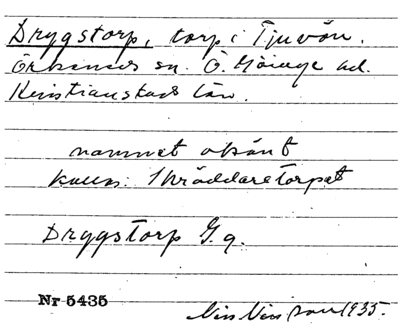 Drygstorp, torp i Tjuvön.
Örkeneds sn. Ö. Göinge hd.
Kristianstads län.
namnet okänt
kallas: Skräddaretorpet
Drygstorp G. 9.
Nr 5435
1935.